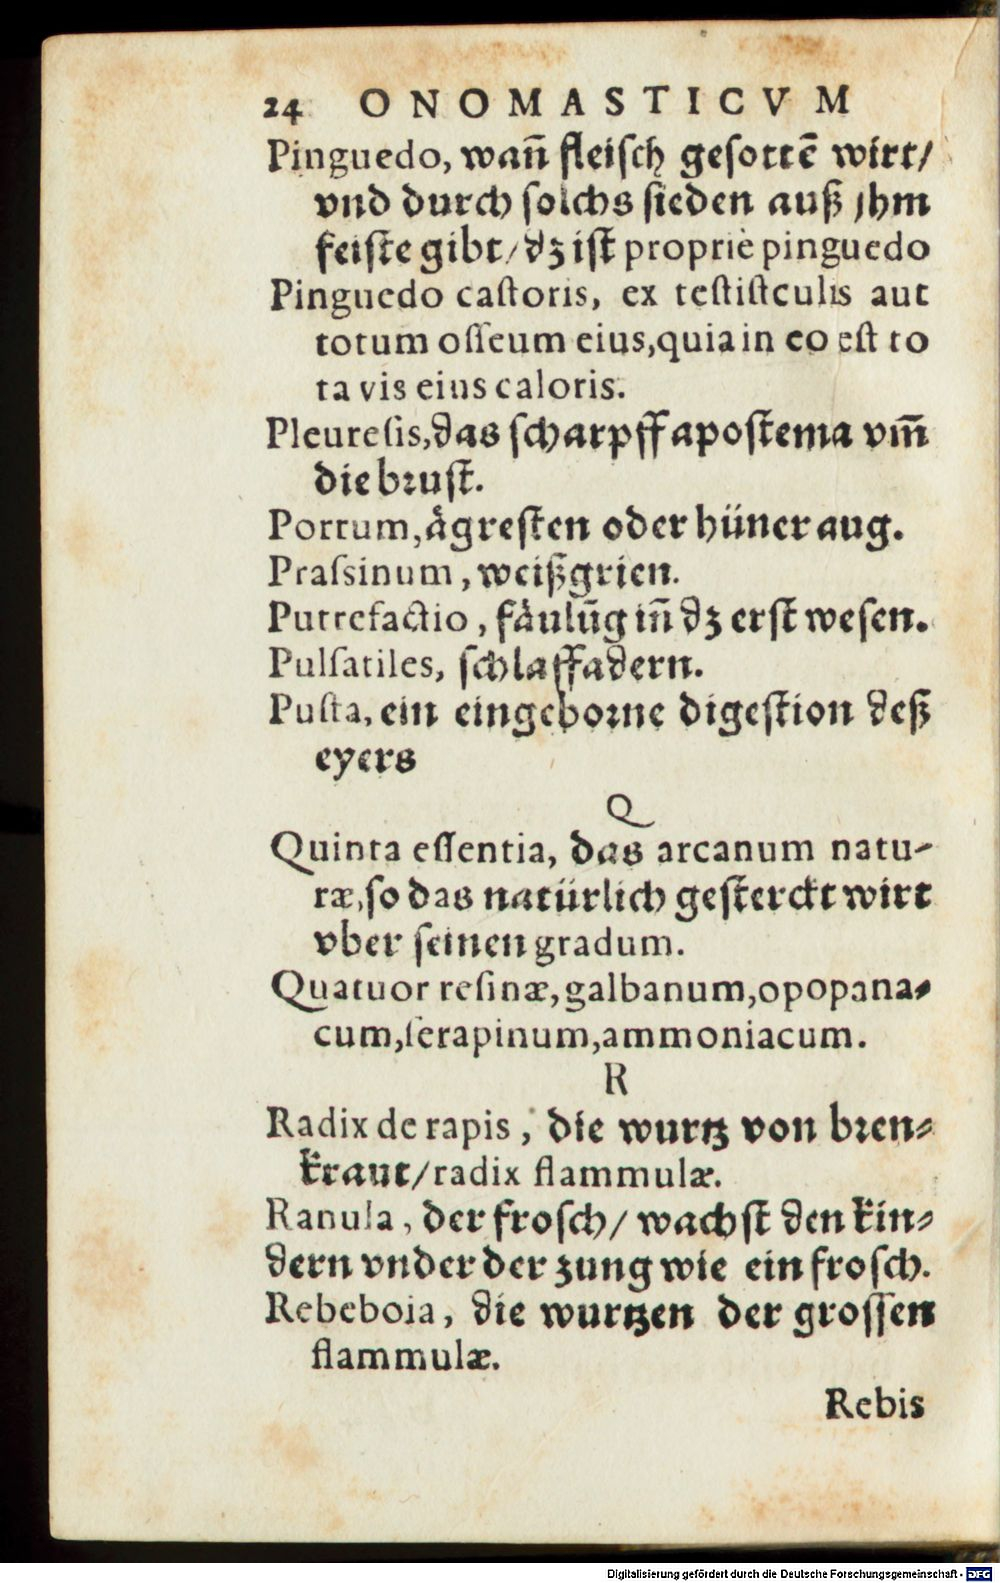 24 ONOMASTICVM
Pinguedo, wañ fleisch gesottē wirt/
vnd durch solchs sieden auß jhm
feiste gibt/dz ist propriè pinguedo
Pinguedo castoris, ex testistculis aut
totum osseum eius,quia in eo est to
ta vis eius caloris.
Pleuresis,das scharpff apostema vm̄
die brust.
Porrum,ågresten oder hüner aug.
Prassinum, weißgrien.
Putrefactio, fåulūg iñ dz erst wesen.
Pulsatiles, schlaffadern.
Pusta, ein eingeborne digestion deß
eyers
Q
Quinta essentia, das arcanum natu-
ræ,so das natürlich gesterckt wirt
vber seinen gradum.
Quatuor resinæ,galbanum,opopana-
cum,serapinum,ammoniacum.
R
Radix de rapis, die wurtz von bren-
kraut/radix flammulæ.
Ranula, der frosch/ wachst den kin-
dern vnder der zung wie ein frosch.
Rebeboia, die wurtzen der grossen
flammulæ.
Rebis
Digitalisierung gefördert durch die Deutsche Forschungsgemeinschaft - DFG